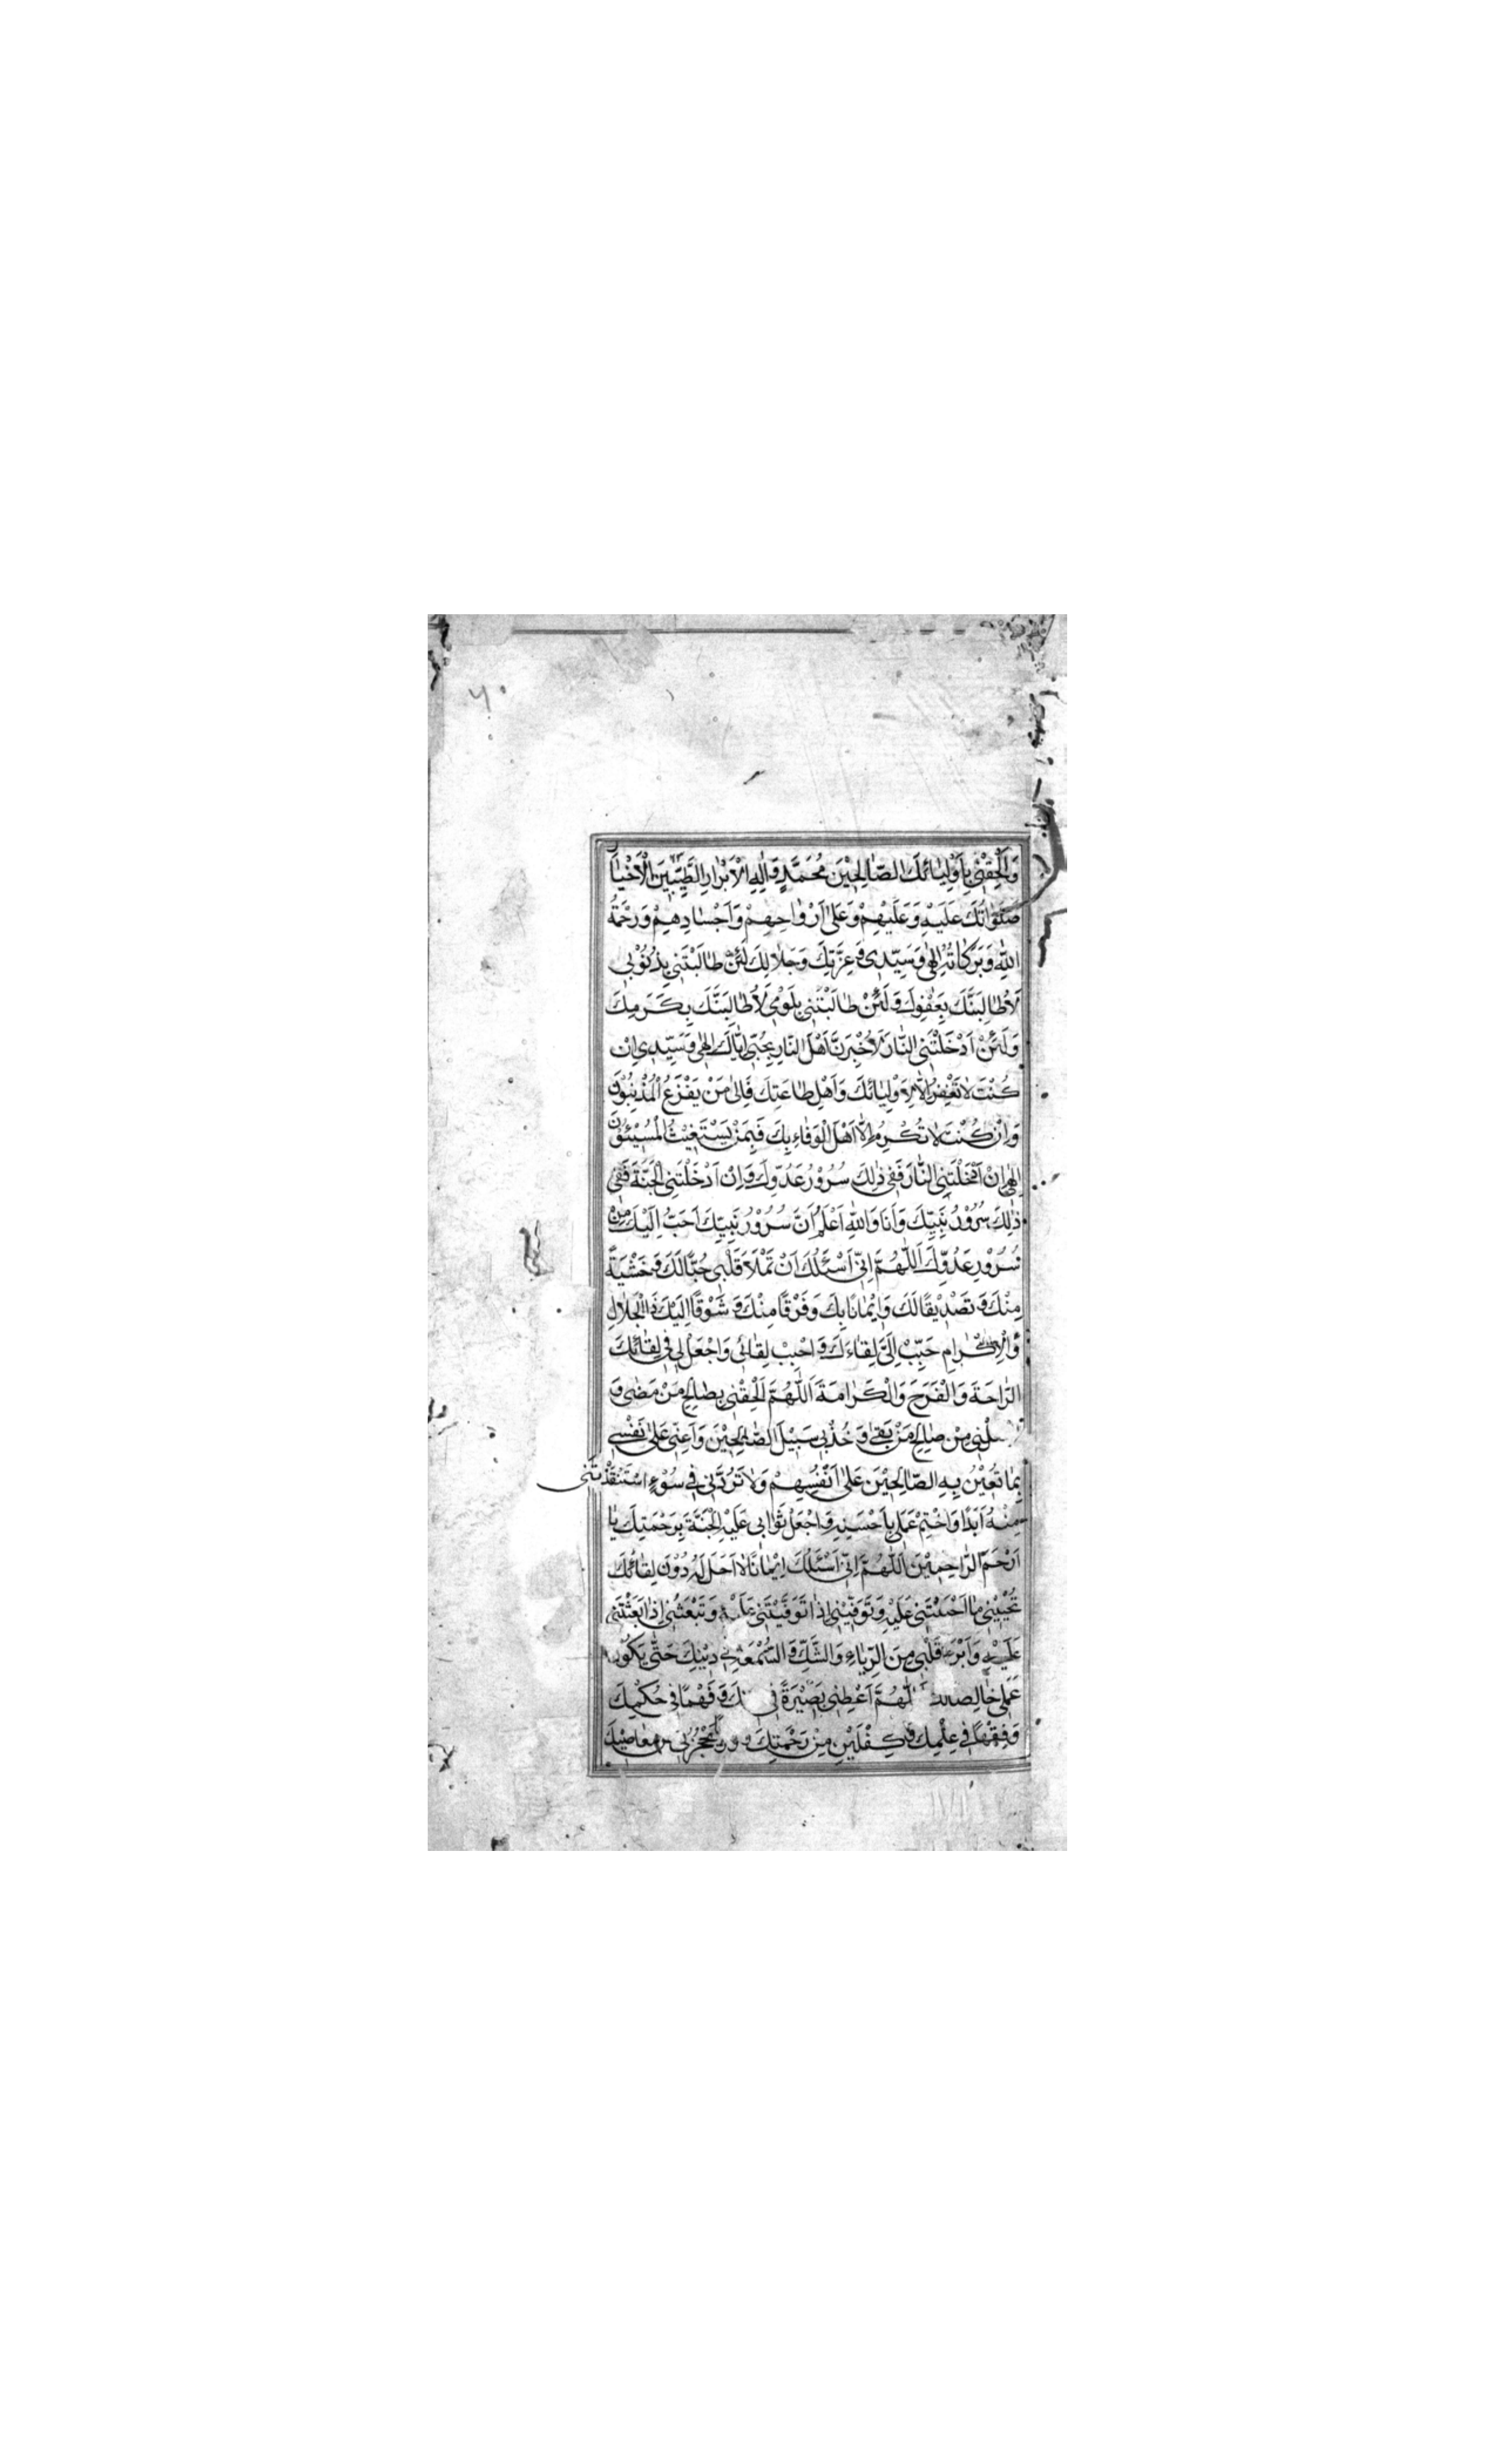 ۶۰
وَاَلْحِقْنِي بِاَوْلِيٰائِكَ الصّٰالِحِيْنَ مُحَمَّدٍ وَاٰلِهِ الْاَبْرٰارِ الطَّيِّبِيْنَ الْاَخْيٰارِ
صَلَوٰاتُكَ عَلَيْهِ وَعَلَيْهِمْ وَعَلٰى اَرْوٰاحِهِمْ وَاَجْسٰادِهِمْ وَرَحْمَةُ
اللّٰهِ وَبَرَكٰاتُهُ اِلٰهِي وَسَيِّدِي وَعِزَّتِكَ وَجَلٰالِكَ لَئِنْ طٰالَبْتَنِي بِذُنُوْبِي
لَاُطٰالِبَنَّكَ بِعَفْوِكَ وَلَئِنْ طٰالَبْتَنِي بِلَوْمِي لَاُطٰالِبَنَّكَ بِكَرَمِكَ
وَلَئِنْ اَدْخَلْتَنِي النّٰارَ لَاُخْبِرَنَّ اَهْلَ النّٰارِ بِحُبِّي اِيّٰاكَ اِلٰهِي وَسَيِّدِي اِنْ
كُنْتَ لٰا تَغْفِرُ اِلّٰا لِاَوْلِيٰائِكَ وَاَهْلِ طٰاعَتِكَ فَاِلٰى مَنْ يَفْزَعُ الْمُذْنِبُوْنَ
وَاِنْ كُنْتَ لٰا تُكْرِمُ اِلّٰا اَهْلَ الْوَفٰاءِ بِكَ فَبِمَنْ يَسْتَغِيْثُ الْمُسِيْئُوْنَ
اِلٰهِي اِنْ اَدْخَلْتَنِي النّٰارَ فَفِي ذٰلِكَ سُرُوْرُ عَدُوِّكَ وَاِنْ اَدْخَلْتَنِي الْجَنَّةَ فَفِي
ذٰلِكَ سُرُوْرُ نَبِيِّكَ وَاَنَا وَاللّٰهِ اَعْلَمُ اَنَّ سُرُوْرَ نَبِيِّكَ اَحَبُّ اِلَيْكَ مِنْ
سُرُوْرِ عَدُوِّكَ اَللّٰهُمَّ اِنِّي اَسْئَلُكَ اَنْ تَمْلَاَ قَلْبِي حُبًّا لَكَ وَخَشْيَةً
مِنْكَ وَتَصْدِيْقًا لَكَ وَاِيْمٰانًا بِكَ وَفَرَقًا مِنْكَ وَشَوْقًا اِلَيْكَ ذَا الْجَلٰالِ
وَالْاِكْرٰامِ حَبِّبْ اِلَيَّ لِقٰاءَكَ وَاَحْبِبْ لِقٰائِي وَاجْعَلْ لِي فِي لِقٰائِكَ
الرّٰاحَةَ وَالْفَرَجَ وَالْكَرٰامَةَ اَللّٰهُمَّ اَلْحِقْنِي بِصٰالِحِ مَنْ مَضٰى وَ
مِنْ صٰالِحِ مَنْ بَقِيَ وَخُذْ بِي سَبِيْلَ الصّٰالِحِيْنَ وَاَعِنِّي عَلٰى نَفْسِي
بِمٰا تُعِيْنُ بِهِ الصّٰالِحِيْنَ عَلٰى اَنْفُسِهِمْ وَلٰا تَرُدَّنِي فِي سُوْءٍ اسْتَنْقَذْتَنِي
مِنْهُ اَبَدًا وَاخْتِمْ عَمَلِي بِاَحْسَنِهِ وَاجْعَلْ ثَوٰابِي عَلَيْهِ الْجَنَّةَ بِرَحْمَتِكَ يٰا
اَرْحَمَ الرّٰاحِمِيْنَ اَللّٰهُمَّ اِنِّي اَسْئَلُكَ اِيْمٰانًا لٰا اَجَلَ لَهُ دُوْنَ لِقٰائِكَ
تُحْيِيْنِي مٰا اَحْيَيْتَنِي عَلَيْهِ وَتَوَفَّيْنِي اِذٰا تَوَفَّيْتَنِي عَلَيْهِ وَتَبْعَثُنِي اِذٰا بَعَثْتَنِي
عَلَيْهِ وَاَبْرِءْ قَلْبِي مِنَ الرِّيٰاءِ وَالشَّكِّ وَالسُّمْعَةِ فِي دِيْنِكَ حَتّٰى يَكُوْنَ
عَمَلِي خٰالِصًا لَكَ اَللّٰهُمَّ اَعْطِنِي بَصِيْرَةً فِي وَفَهْمًا فِي حُكْمِكَ
وَفِقْهًا فِي عِلْمِكَ وَكِفْلَيْنِ مِنْ رَحْمَتِكَ يَحْجُزُنِي عَنْ مَعٰاصِيْكَ